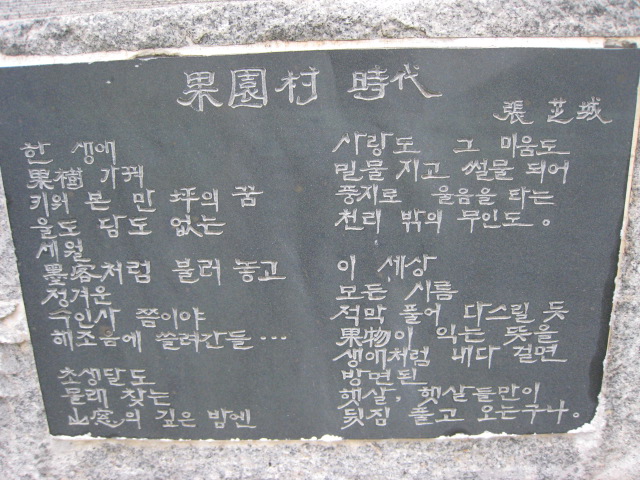 果園村 時代
張 芝城
한 생애
果樹 가꿔
키워 본 만 坪의 꿈
울도 담도 없는
세월
墨客처럼 불러 놓고
정겨운
수인사 쯤이야
해조음에 쓸려간들…
초생달도
몰래 찾는
山窓의 깊은 밤엔
사랑도 그 미움도
밀물 지고 썰물 되어
풍지로 울음을 타는
천리 밖의 무인도。
이 세상
모든 시름
적막 풀어 다스릴 듯
果物이 익는 뜻을
생애처럼 내다 걸면
방면된
햇살, 햇살들만이
뒷짐 풀고 오는구나。